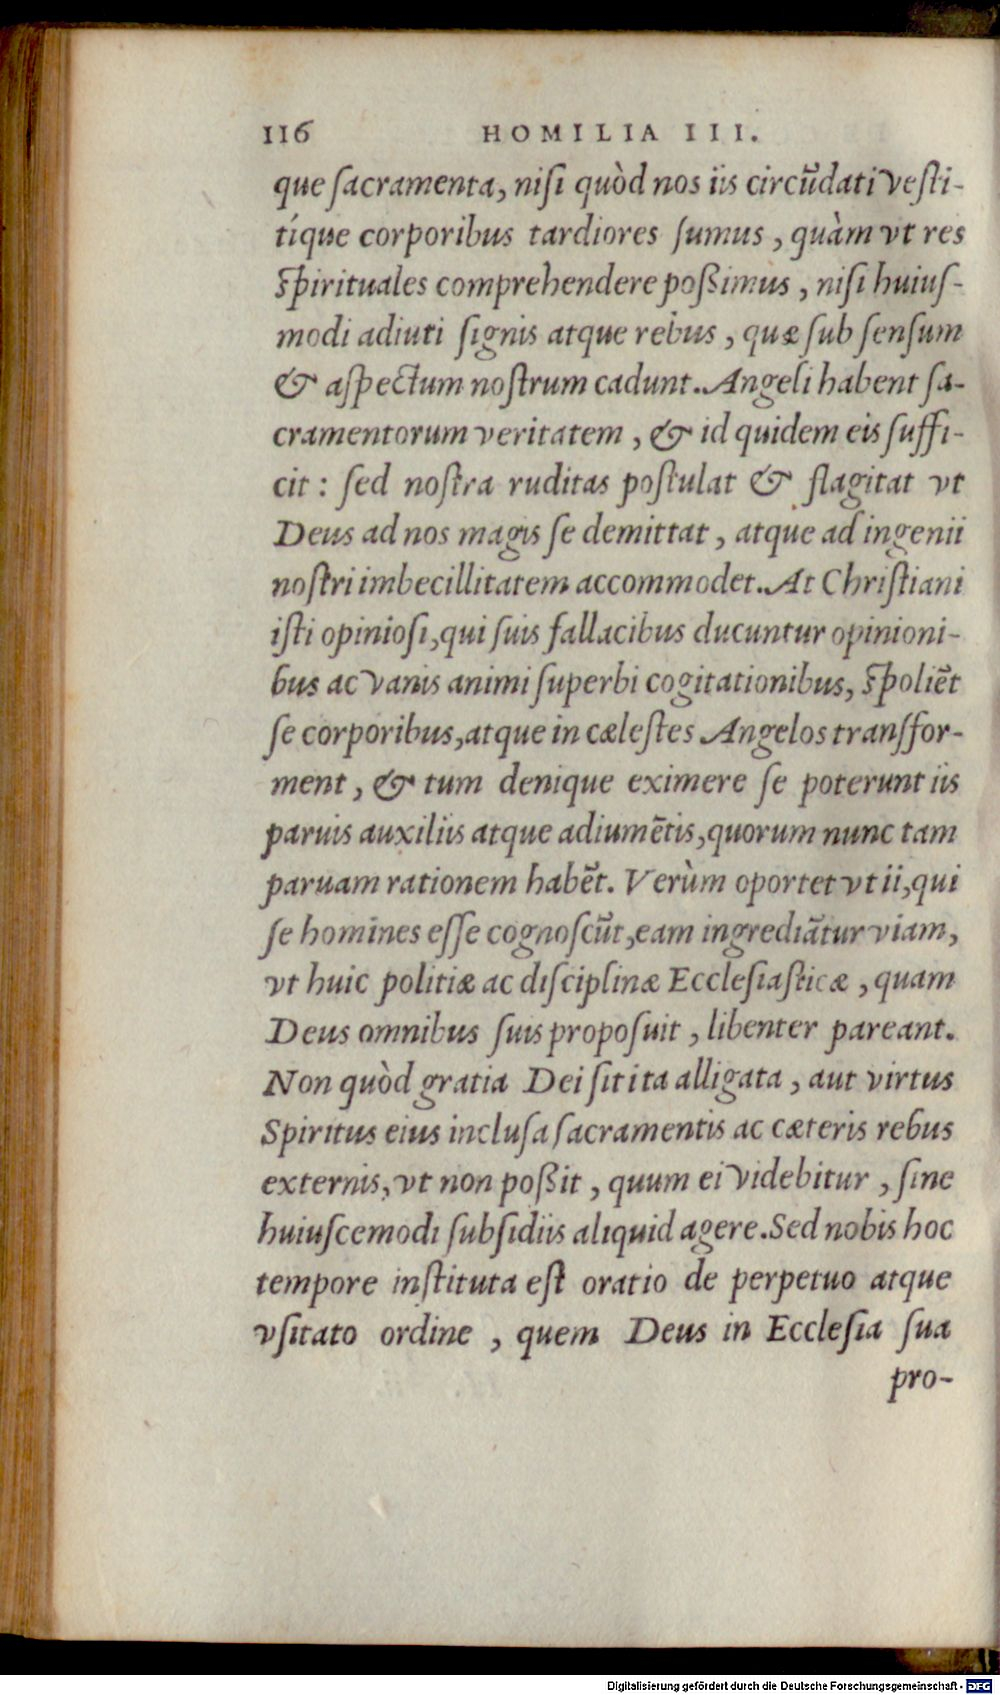 116 HOMILIA III.
que ſacramenta, niſi quòd nos iis circũdati veſti-
tíque corporibus tardiores ſumus, quàm vt res
ſpirituales comprehendere poßimus, niſi huiuſ-
modi adiuti ſignis atque rebus, quæ ſub ſenſum
& aſpectum noſtrum cadunt. Angeli habent ſa-
cramentorum veritatem, & id quidem eis ſuffi-
cit: ſed noſtra ruditas poſtulat & flagitat vt
Deus ad nos magis ſe demittat, atque ad ingenii
noſtri imbecillitatem accommodet. At Chriſtiani
iſti opinioſi, qui ſuis fallacibus ducuntur opinioni-
bus ac vanis animi ſuperbi cogitationibus, ſpoliẽt
ſe corporibus, atque in cæleſtes Angelos tranſfor-
ment, & tum denique eximere ſe poterunt iis
paruis auxiliis atque adiumẽtis, quorum nunc tam
paruam rationem habẽt. Verùm oportet vt ii, qui
ſe homines eſſe cognoſcũt, eam ingrediãtur viam,
vt huic politiæ ac diſciplinæ Eccleſiaſticæ, quam
Deus omnibus ſuis propoſuit, libenter pareant.
Non quòd gratia Dei ſit ita alligata, aut virtus
Spiritus eius incluſa ſacramentis ac cæteris rebus
externis, vt non poßit, quum ei videbitur, ſine
huiuſcemodi ſubſidiis aliquid agere. Sed nobis hoc
tempore inſtituta eſt oratio de perpetuo atque
vſitato ordine, quem Deus in Eccleſia ſua
pro-
Digitalisierung gefördert durch die Deutsche Forschungsgemeinschaft - DFG